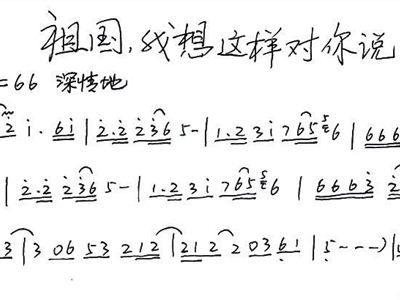 祖国,我想这样对你说
=66 深情地
2 i. 6i | 2.2 236 5- | 1.2 3 i 7 65 56 | 666
| 2.2 236 5- | 1.2 3 i 7 65 56 | 6663 2
3 | 3 06 53 212 | 212 2 0361 | 5 - - -) |